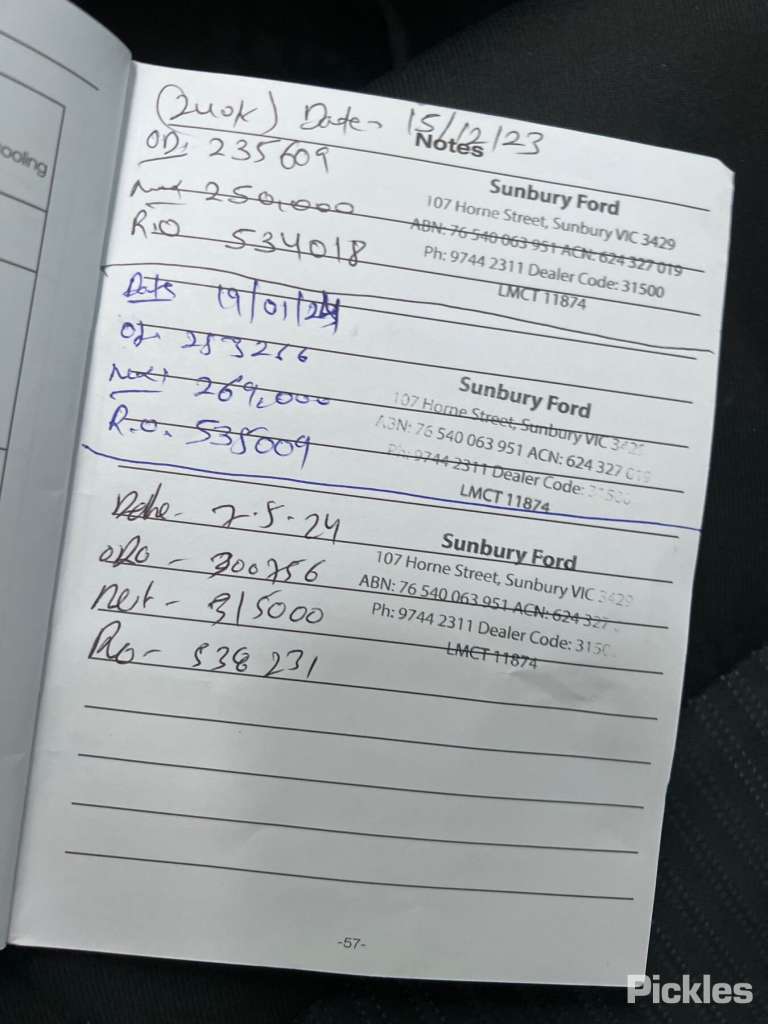 ooling
(240K) Date - 15/12/23
Notes
OD. 235609
Next 250,000
R.O 534018
Sunbury Ford
107 Horne Street, Sunbury VIC 3429
ABN: 76 540 063 951 ACN: 624 327 019
Ph: 9744 2311 Dealer Code: 31500
LMCT 11874
Date 19/01/24
OD. 253266
Next 269,000
R.O. 535009
Sunbury Ford
107 Horne Street, Sunbury VIC 3429
ABN: 76 540 063 951 ACN: 624 327 019
Ph: 9744 2311 Dealer Code: 31500
LMCT 11874
Date - 2.5.24
ODO - 300756
Next - 315000
RO - 538231
Sunbury Ford
107 Horne Street, Sunbury VIC 3429
ABN: 76 540 063 951 ACN: 624 327
Ph: 9744 2311 Dealer Code: 3150
LMCT 11874
-57-
Pickles